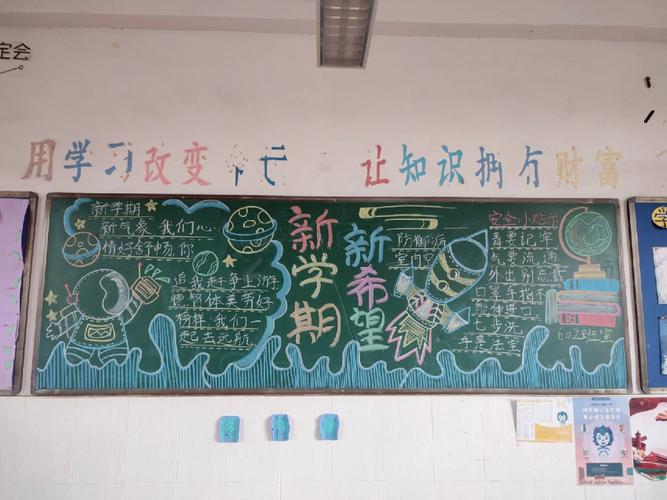 定会
用学习改变
让知识拥有财富
新学期
新气象 我们心
情好舒畅 你
追我赶争上游
德智体美劳好
榜样 我们一
起去远航
新学期
新希望
防御病
室内空
安全小贴示
毒要记牢
气要流通
外出别忘戴
口罩手指不
能伸进口
七步洗
手是法宝
602班宣
学